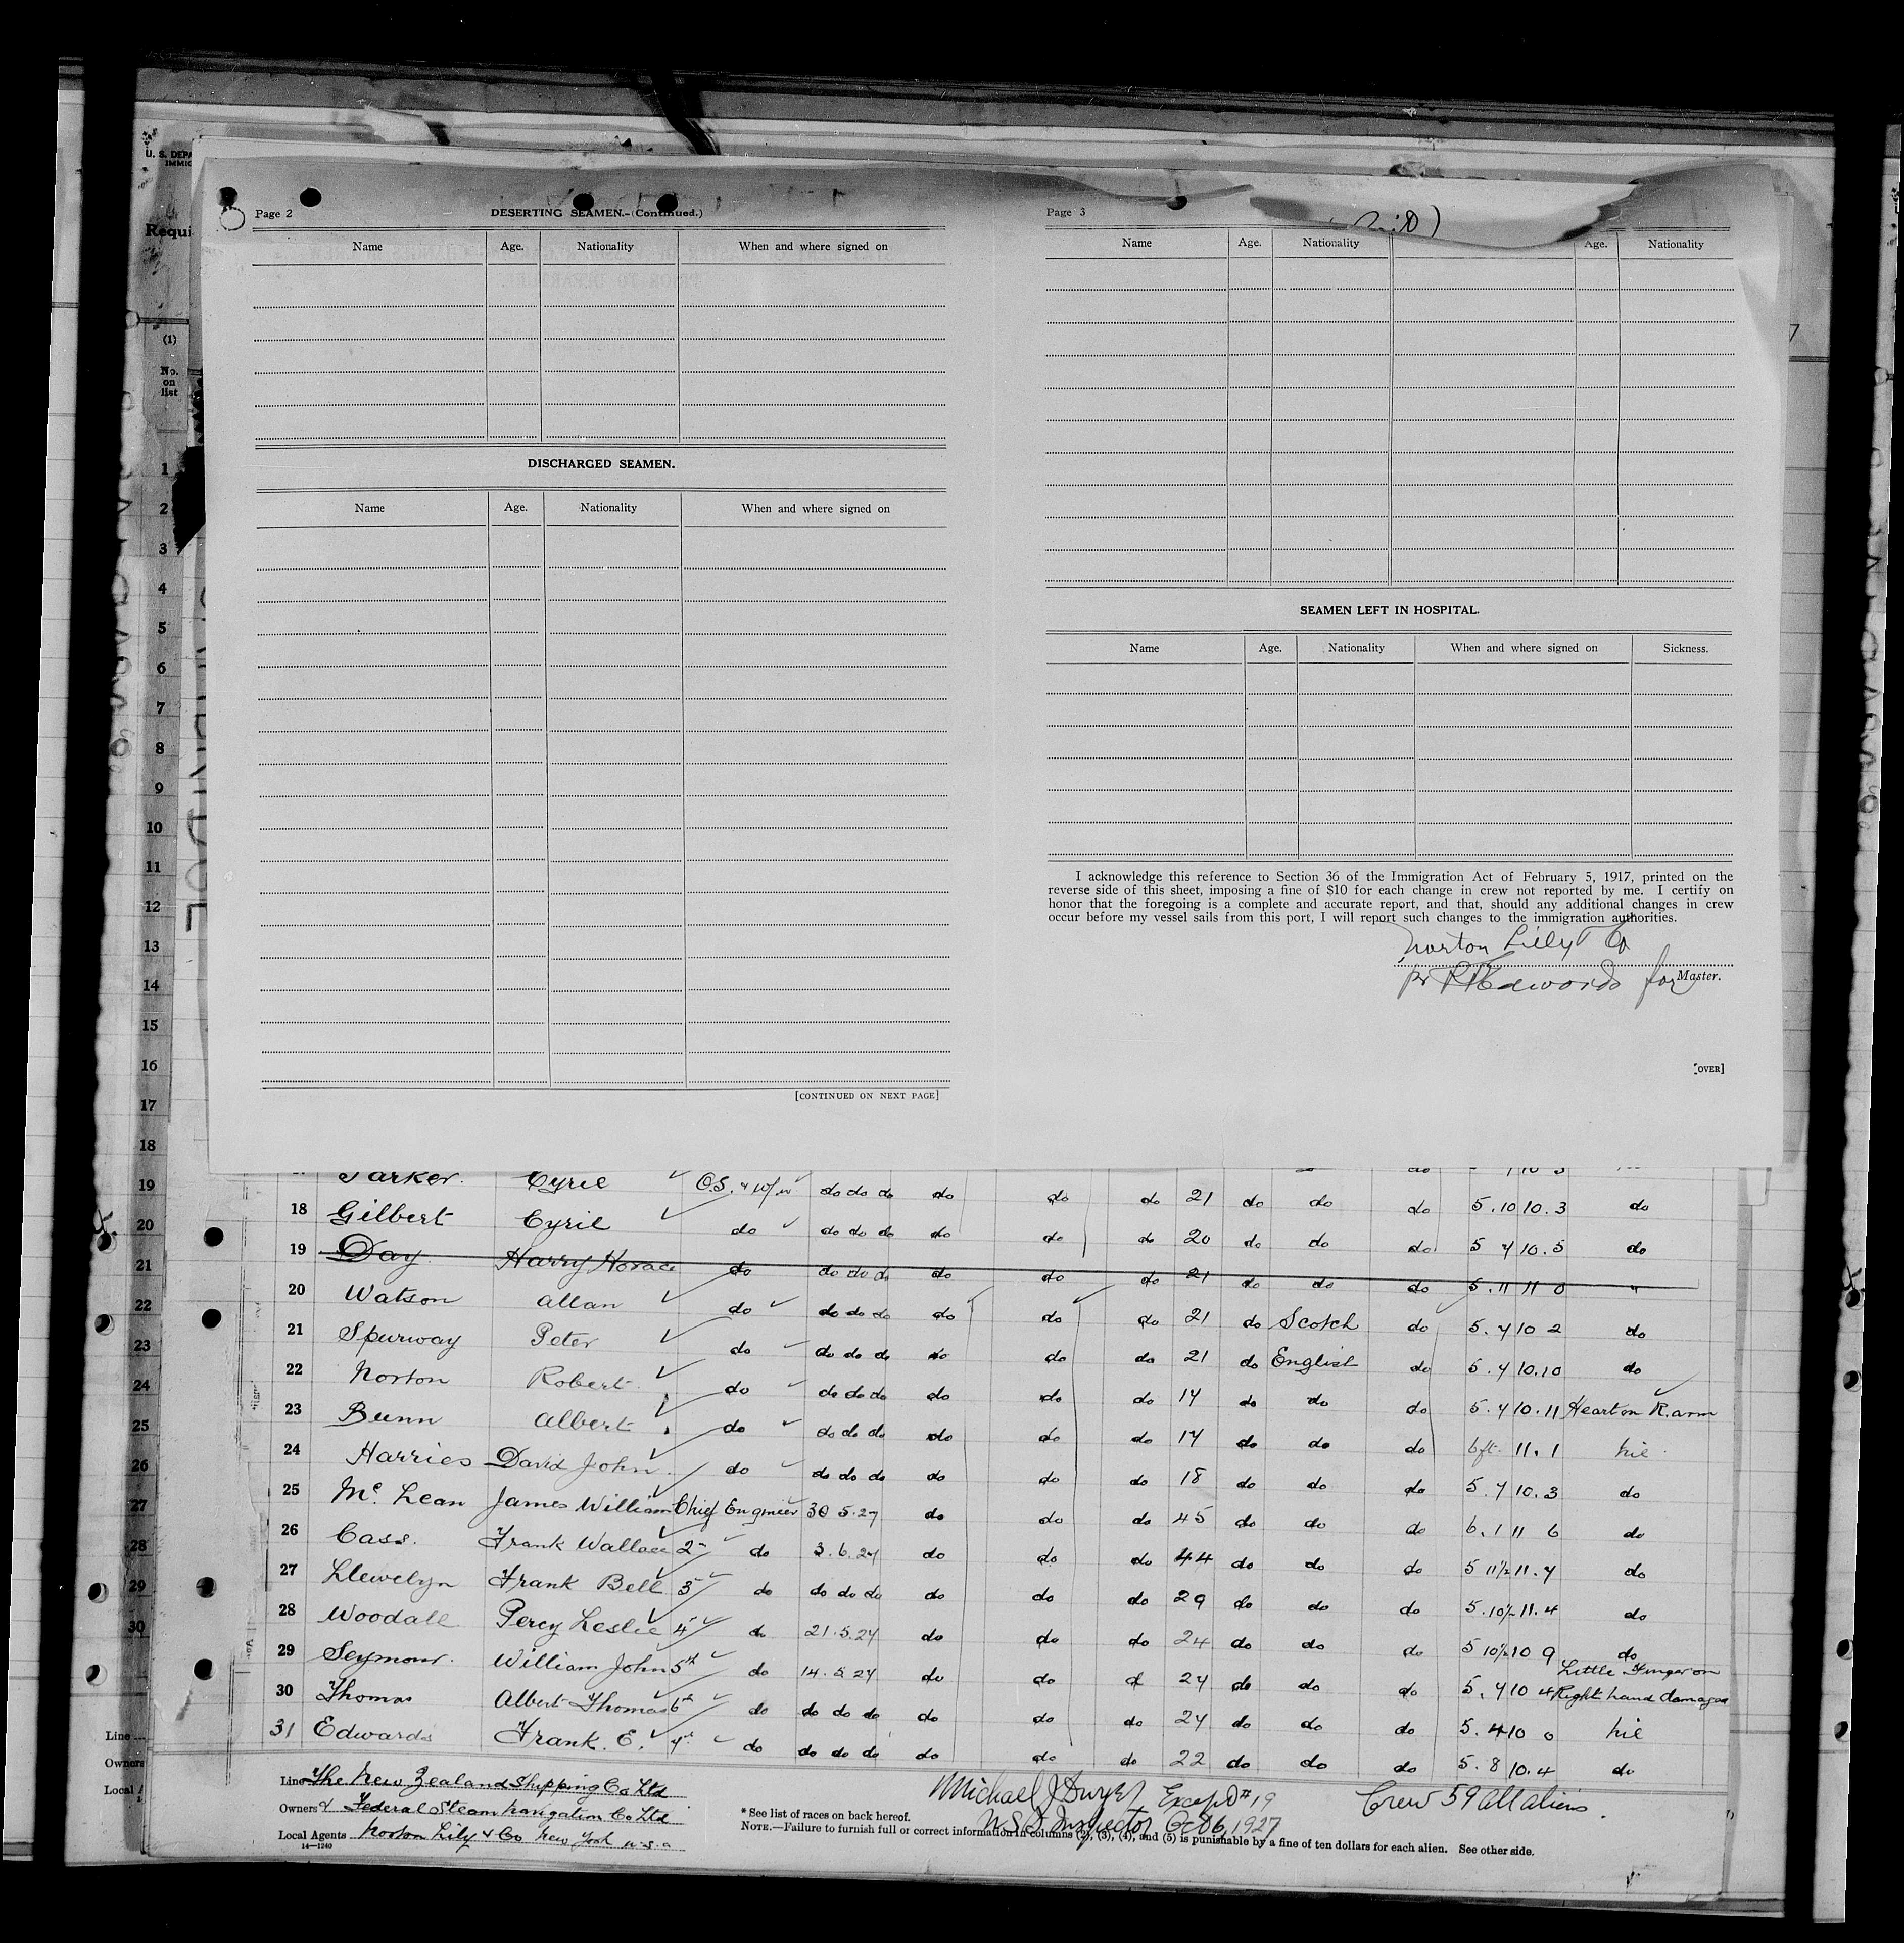 U. S. DEPA
IMMIG
Requi
(1)
No.
on
list
1
2
3
4
5
6
7
8
9
10
11
12
13
14
15
16
17
18
19
20
21
22
23
24
25
26
27
28
29
30
Line
Owners
Local A
Page 2
DESERTING SEAMEN.-(Continued.)
Name Age. Nationality When and where signed on
DISCHARGED SEAMEN.
Name Age. Nationality When and where signed on
[CONTINUED ON NEXT PAGE]
Page 3
Name Age. Nationality Age. Nationality
SEAMEN LEFT IN HOSPITAL.
Name Age. Nationality When and where signed on Sickness.
I acknowledge this reference to Section 36 of the Immigration Act of February 5, 1917, printed on the
reverse side of this sheet, imposing a fine of $10 for each change in crew not reported by me. I certify on
honor that the foregoing is a complete and accurate report, and that, should any additional changes in crew
occur before my vessel sails from this port, I will report such changes to the immigration authorities.
Norton Lilly Co
pr Edwards for Master.
[OVER]
Parker. Cyril O.S. do do do do do do 21 do do do 5.10 10.3 do
18 Gilbert Cyril do do do do do do do 20 do do do 5 7 10.5 do
19 Day Harry Horace do do do do do do do 21 do do do 5.11 11 0 "
20 Watson Allan do do do do do do do 21 do Scotch do 5.7 10 2 do
21 Spurway Peter do do do do do do do 21 do English do 5.7 10.10 do
22 Norton Robert do do do do do do do 17 do do do 5.7 10.11 Heart on R. arm
23 Bunn Albert do do do do do do do 17 do do do 6ft 11.1 nil
24 Harries David John do do do do do do do 18 do do do 5.7 10.3 do
25 Mc Lean James William Chief Engineer 30 5.27 do do do 45 do do do 6.1 11 6 do
26 Cass. Frank Wallace 2nd do 3.6.27 do do do 44 do do do 5 11½ 11.7 do
27 Llewelyn Frank Bell 3 do do do do do do do 29 do do do 5.10½ 11.4 do
28 Woodall Percy Leslie 4 do 21.5.27 do do do 24 do do do 5 10½ 10 9 do
29 Seymour. William John 5th do 14.5.27 do do d 27 do do do 5.7 10 4 Little Finger on Right hand damaged
30 Thomas Albert Thomas 6th do do do do do do do 27 do do do 5.4 10 0 nil
31 Edwards Frank. E. 7th do do do do do do do 22 do do do 5.8 10.4 do
Line The New Zealand Shipping Co Ltd
Owners & Federal Steam Navigation Co Ltd
Local Agents Norton Lily & Co New York U.S.A
14—1240
Michael J Dwyer Except #19
U.S. Inspector Oct 6, 1927
Crew 59 all aliens.
* See list of races on back hereof.
NOTE.—Failure to furnish full or correct information in columns (2), (3), (4), and (5) is punishable by a fine of ten dollars for each alien. See other side.